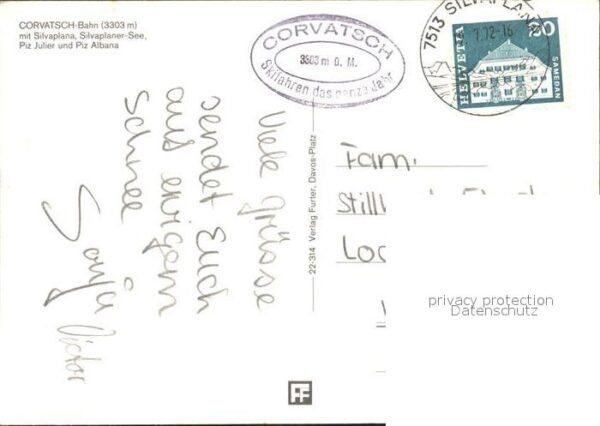 CORVATSCH-Bahn (3303 m)
mit Silvaplana, Silvaplaner-See,
Piz Julier und Piz Albana
CORVATSCH
3303 m ü. M.
Skifahren das ganze Jahr
7513 SILVAPLANA
HELVETIA
SAMEDAN
Viele Grüsse
sendet Euch
aus ewigem
Schnee
Sonja
Victor
22-314 Verlag Furter, Davos-Platz
Fam.
privacy protection
Datenschutz